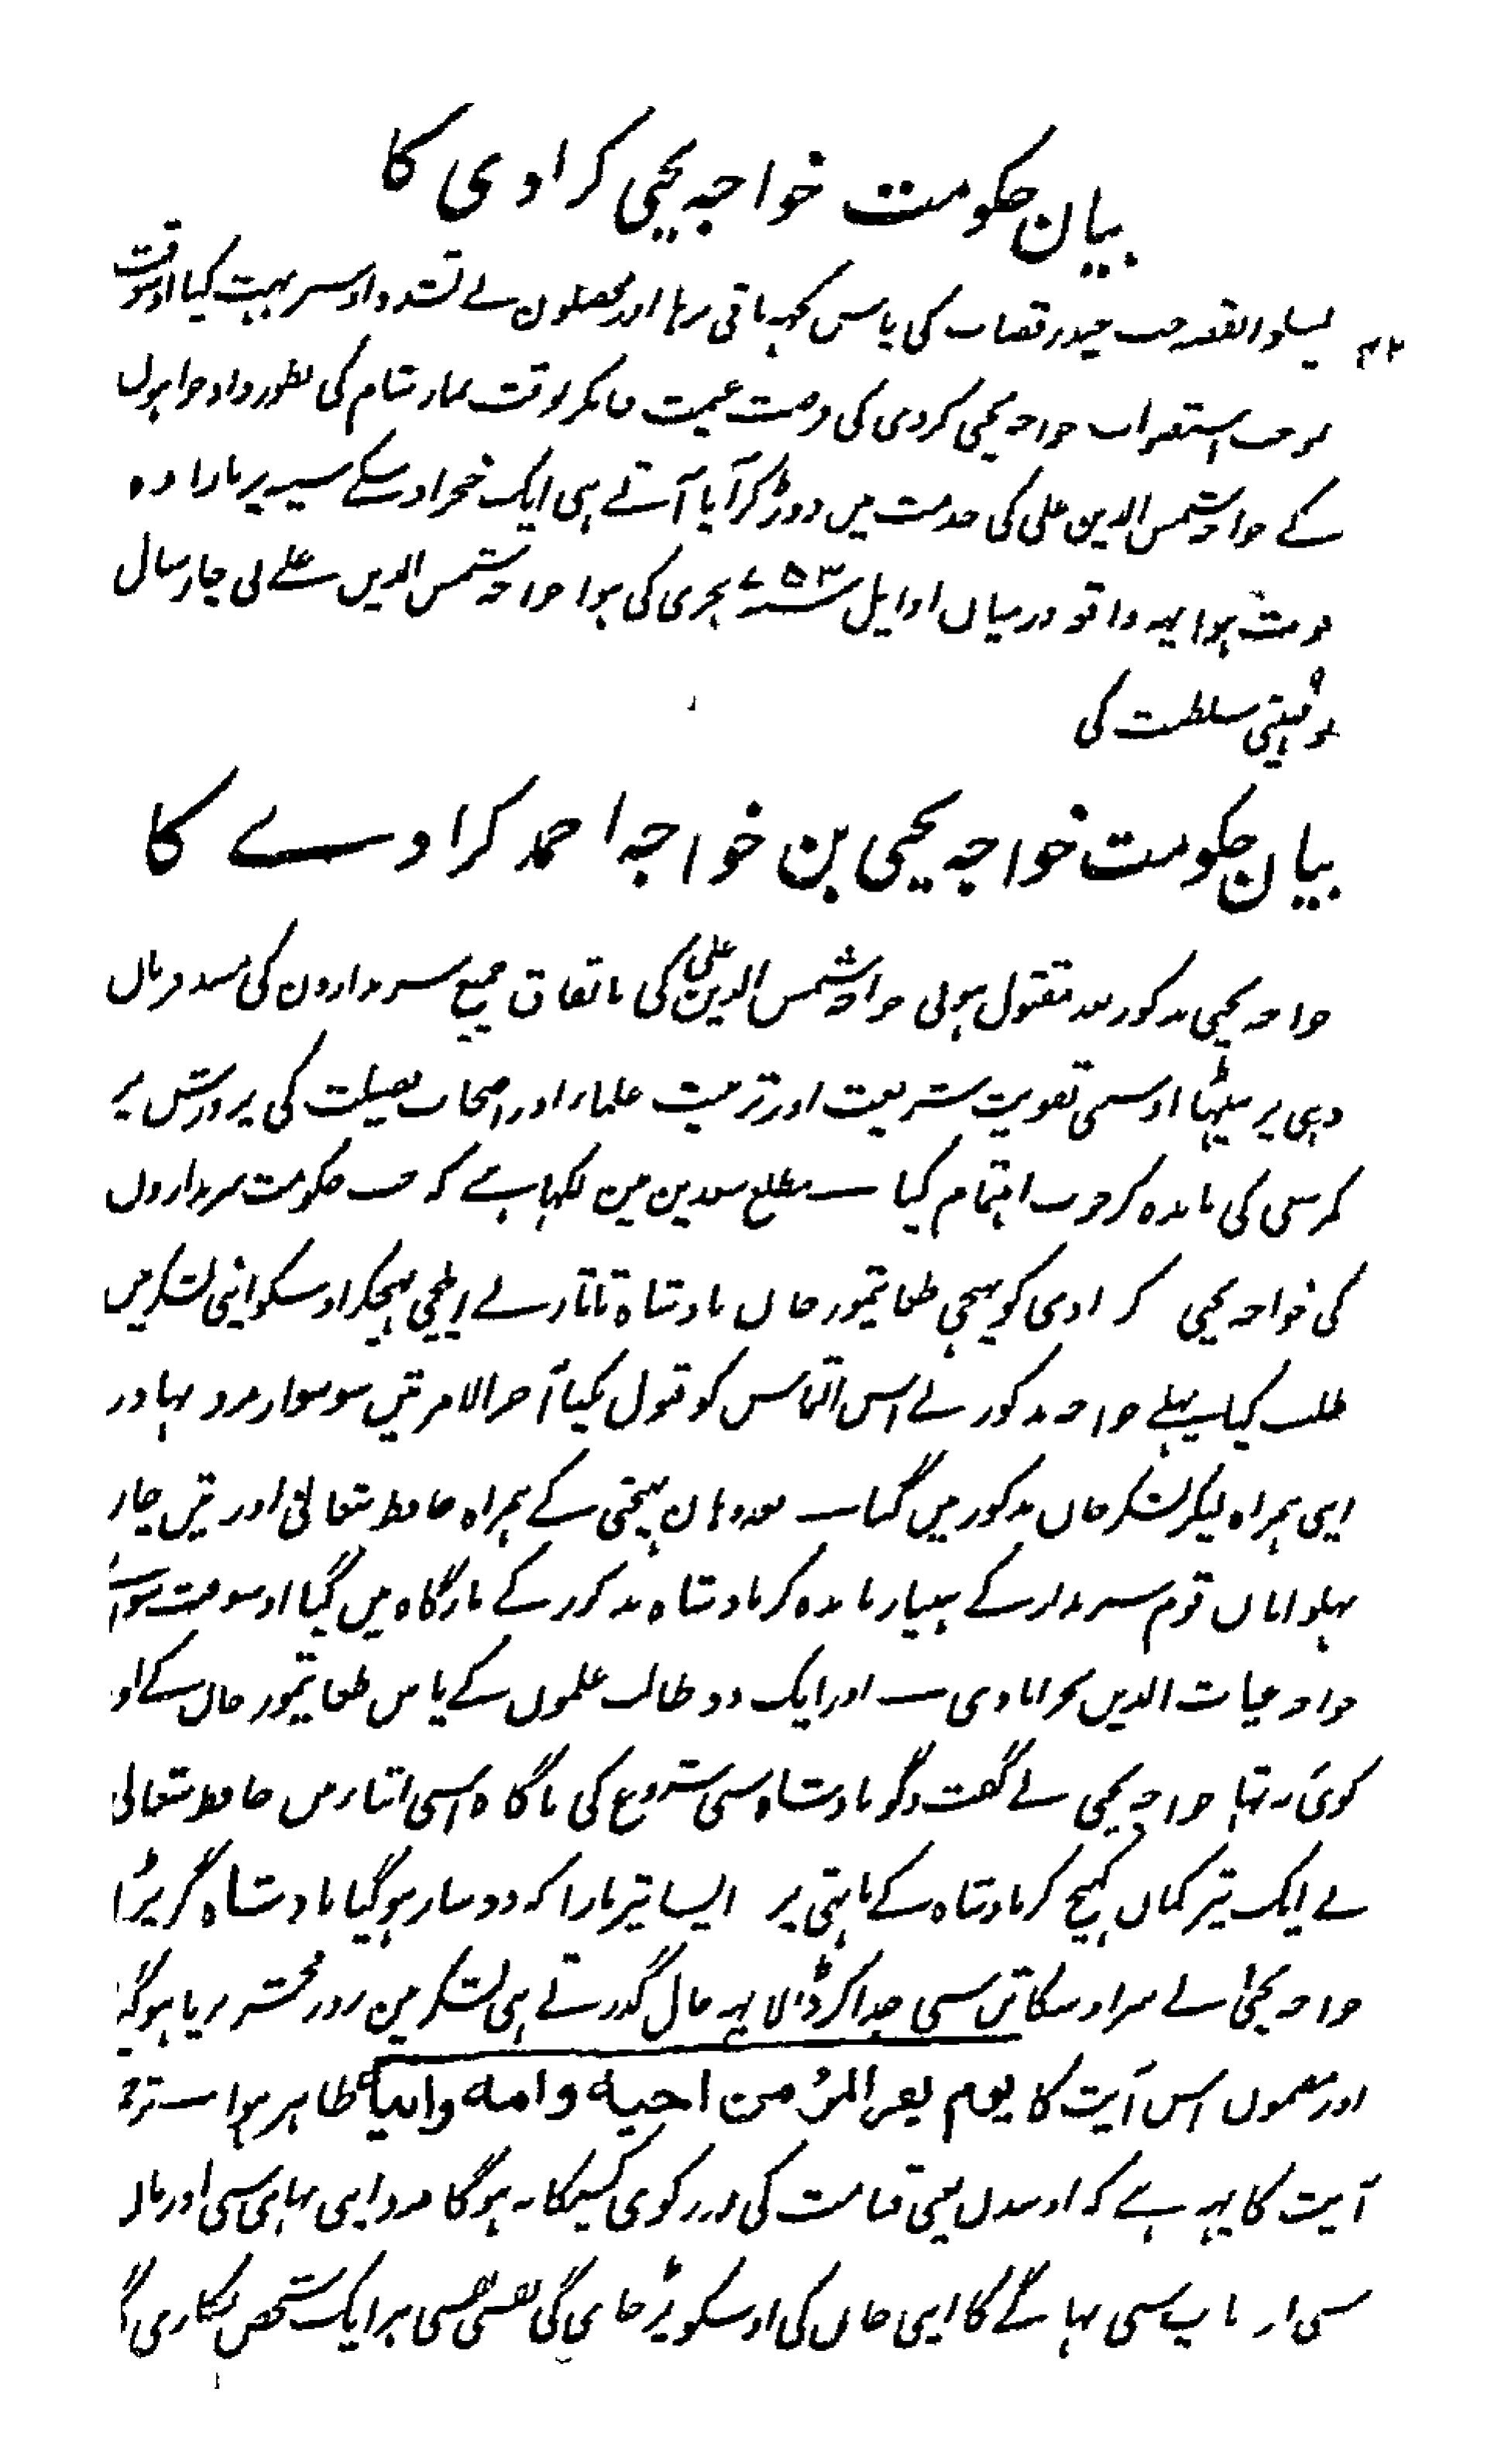 بیان حکومت خواجہ یحیی کراوی کا
القصہ جب حیدر قصاب کی پاس کچہہ باقی رہا اور محصلون نے تشدد اوسپر بہت کیا اوسوقت
خواجہ یحیی کردی کی فرصت غنیمت جانکر بوقت نماز شام کی بطور داد خواہوں
کے خواجہ شمس الدین علی کی خدمت میں دوڑ کر آیا آتے ہی ایک خنجر اوسکے سینہ پر مارا وہ
فوت ہوا یہہ واقعہ درمیان اوایل سنہ ۷۵۳ ہجری کی ہوا خواجہ شمس الدین علے نی چار سال
نو مہینی سلطنت کی
بیان حکومت خواجہ یحیی بن خواجہ احمد کراوے کا
خواجہ یحیی مذکور بعد مقتول ہونی خواجہ شمس الدین علی کی باتفاق جمیع سربدارون کی مسند فرمان
دہی پر بیٹہا اوسنی تقویت شریعت اور تربیت علماء اور اصحاب فضیلت کی پرورش پر
کمر سعی کی باندہ کر خوب اہتمام کیا مطلع سعدین مین لکہا ہے کہ جب حکومت سربداروں
کی خواجہ یحیی کراوی کو پہنچی طغا تیمور خان بادشاہ تاتار نے ایلچی بہیجکر اوسکو اپنی لشکر میں
طلب کیا پہلے خواجہ مذکور نے اس التماس کو قبول نکیا آخر الامر تین سو سوار مرد بہادر
اپنی ہمراہ لیکر لشکر خان مذکور میں گیا بعد وہان پہنچنی کے ہمراہ حافظ شغانی اور تین چار
پہلوانان قوم سربدار کے ہتیار باندہ کر بادشاہ مذکور کے بارگاہ میں گیا اوسوقت سوائے
خواجہ غیاث الدین بحرابادی اور ایک دو طالب علموں کے پاس طغا تیمور خان کے اور
کوئی نہ تہا خواجہ یحیی نے گفت وگو بادشاہ سی شروع کی ناگاہ اسی اثناء میں حافظ شغانی
نے ایک تیر کمان کہینچ کر بادشاہ کے ماتہی پر ایسا تیر مارا کہ دوسار ہوگیا بادشاہ گر پڑا
خواجہ یحیی نے سر اوسکا تن سی جدا کر ڈالا یہہ حال گذرتے ہی لشکر مین روز محشر برپا ہوگیا
اور مضمون اس آیت کا یوم یفر المرء من اخیه وامه وابیه ظاہر ہوا ترجمہ
آیت کا یہہ ہے کہ اوسدن یعنی قیامت کی روز کوی کسیکا نہ ہوگا مرد اپنی بہائی سی اور ماں
سی اور باپ سی بہاگے گا اپنی جان کی اوسکو پڑ جای گی نفسی نفسی ہر ایک شخص پکاری گا